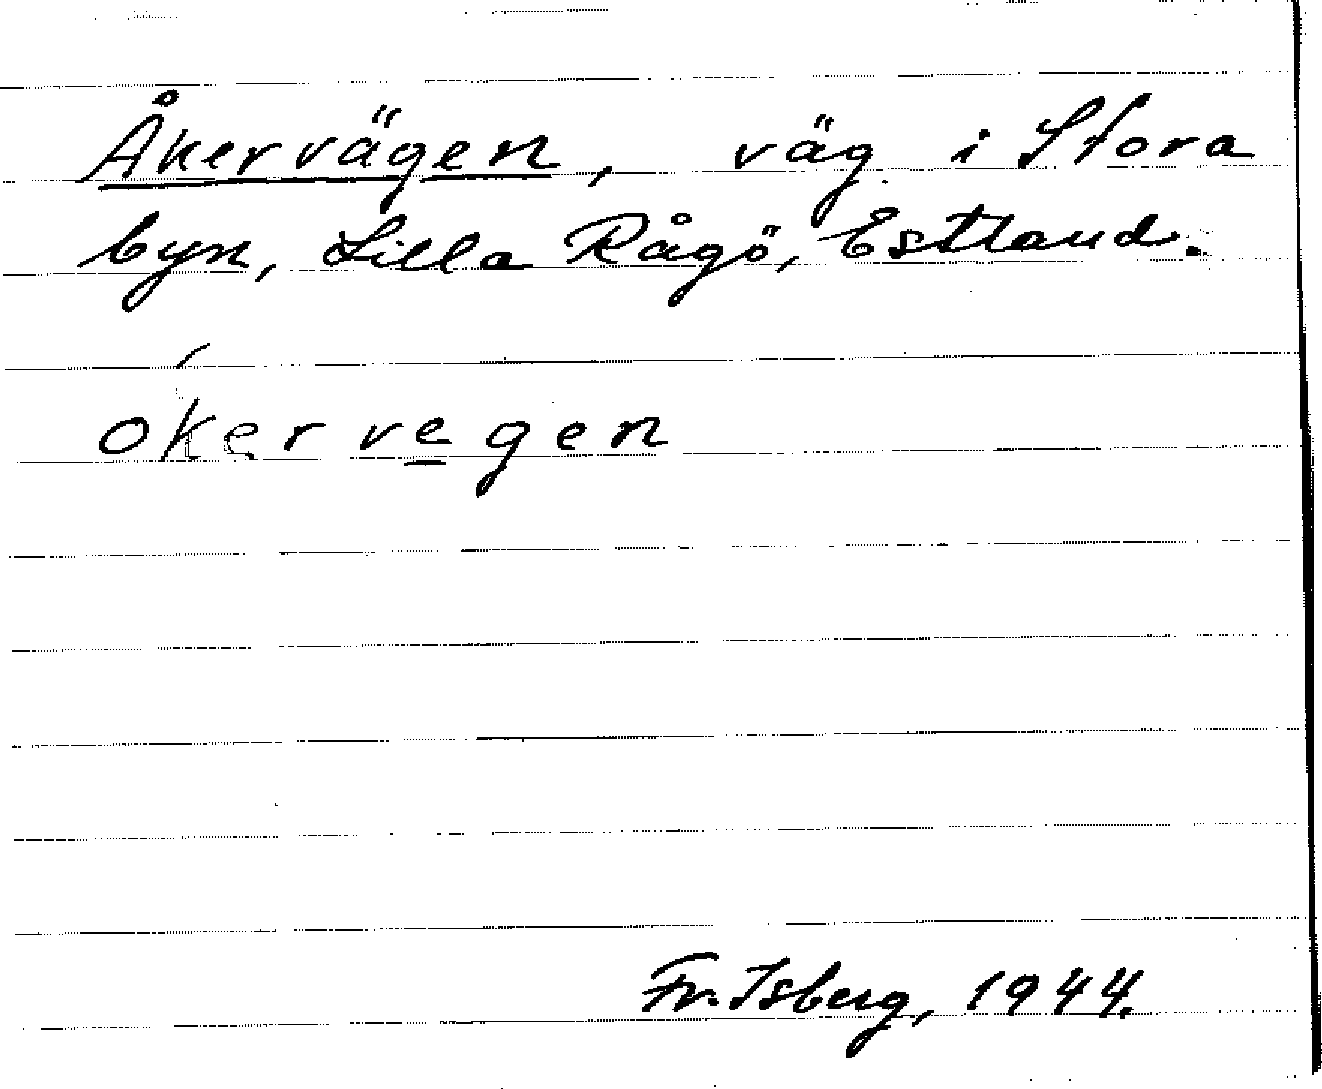 Åkervägen, väg i Stora
byn, Lilla Rågö, Estland.
ókervegen
Fr. Isberg, 1944.